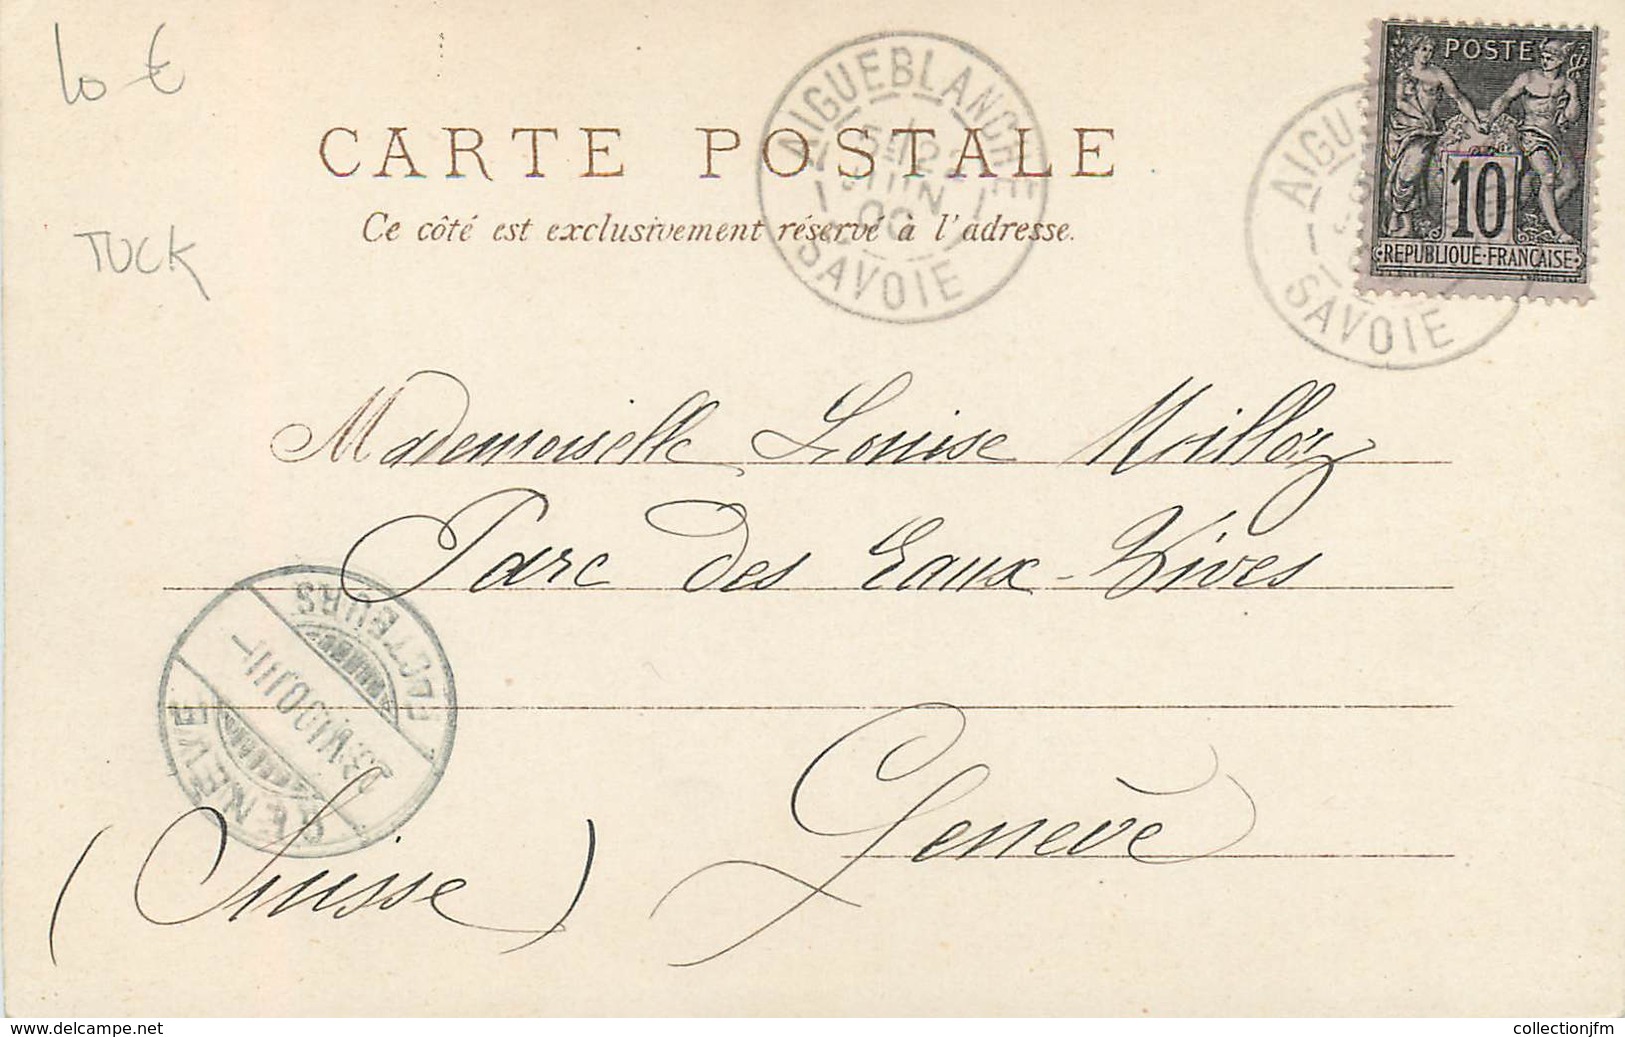 10 €
TUCK
CARTE POSTALE
Ce côté est exclusivement réservé à l'adresse.
AIGUEBLANCHE
22
JUIN
00
SAVOIE
POSTE
10
REPUBLIQUE·FRANÇAISE
AIGU
SAVOIE
Mademoiselle Louise
Parc des Eaux-Vives
Genève
(Suisse)
GENEVE
FACTEURS
www.delcampe.net
collectionjfm